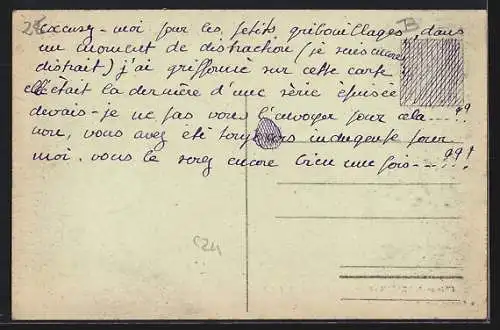 Excusez-moi pour les petits gribouillages, dans
un moment de distraction (je suis encore
distrait) j'ai griffonné sur cette carte
elle était la dernière d'une série épuisée
devais-je ne pas vous l'envoyer pour cela ----??
non, vous avez été toujours indulgente pour
moi. vous le serez encore bien une fois---??!